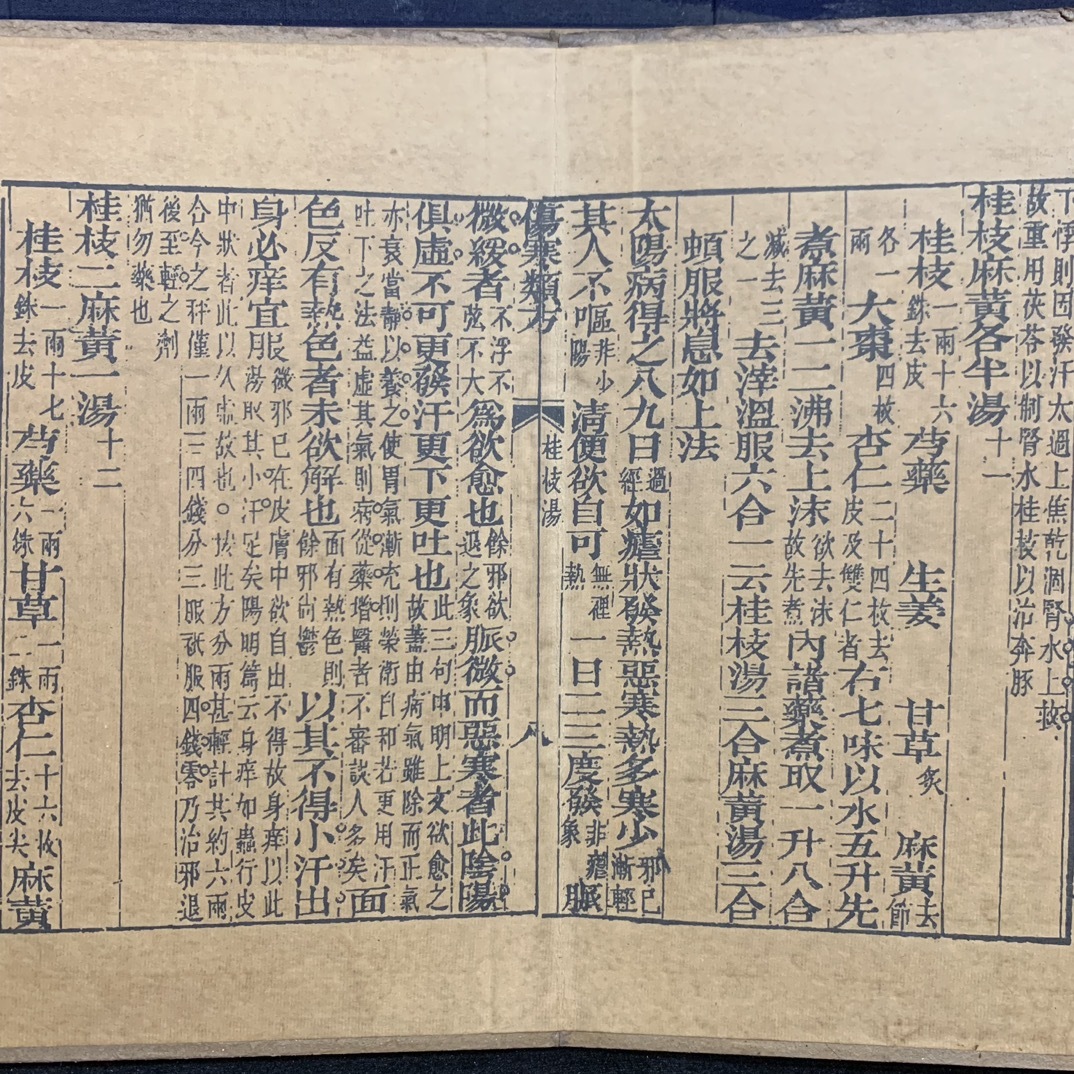 下悸則因發汗太過上焦乾涸腎水上救
故重用茯苓以制腎水桂枝以治奔豚
桂枝麻黃各半湯十一
桂枝一兩十六銖去皮 芍藥 生姜 甘草炙 麻黃去節
各一兩 大棗四枚 杏仁二十四枚去皮及雙仁者 右七味以水五升先
煮麻黃一二沸去上沫欲去沫故先煮內諸藥煮取一升八合
減去三之一 去滓溫服六合一云桂枝湯三合麻黃湯三合
頓服將息如上法
太陽病得之八九日過經如瘧狀發熱惡寒熱多寒少邪已漸輕
其人不嘔非少陽清便欲自可無裡熱一日二三度發非瘧象脈
傷寒類方 桂枝湯 八
微緩者不浮不弦不大爲欲愈也餘邪欲退之象脈微而惡寒者此陰陽
俱虛不可更發汗更下更吐也此三句申明上文欲愈之故蓋由病氣雖除而正氣
亦衰當靜以養之使胃氣漸充則榮衛自和若更用汗吐下之法益虛其氣則病從藥增醫者不審誤人多矣面
色反有熱色者未欲解也面有熱色則餘邪尚鬱以其不得小汗出
身必痒宜服微邪已在皮膚中欲自出不得故身痒以此湯取其小汗足矣陽明篇云身痒如蟲行皮
中狀者此以久虛故也。按此方分兩甚輕計其約六兩合今之秤僅一兩三四錢分三服祗服四錢零乃治邪退
後至輕之劑猶勿藥也
桂枝二麻黃一湯十二
桂枝一兩十七銖去皮 芍藥一兩六銖 甘草一兩二銖 杏仁十六枚去皮尖 麻黃